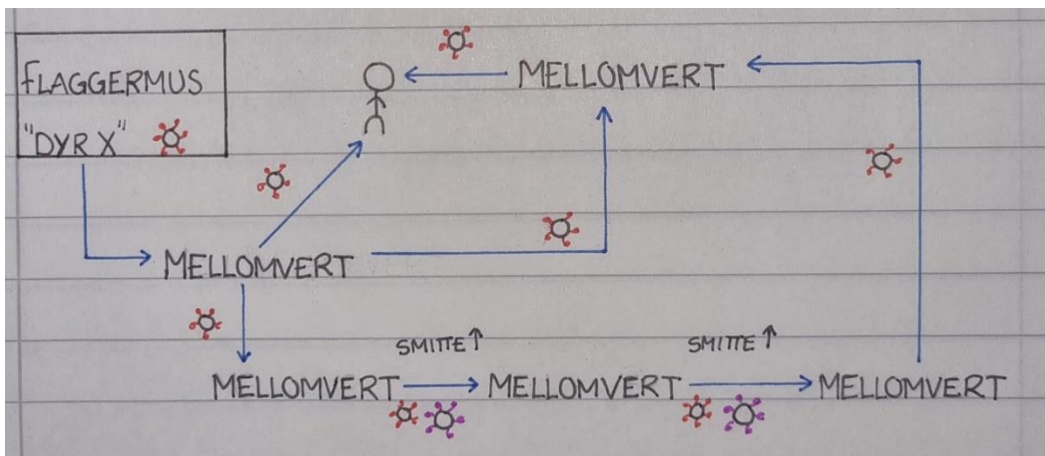 FLAGGERMUS
"DYR X"
MELLOMVERT
MELLOMVERT
SMITTE↑
SMITTE↑
MELLOMVERT
MELLOMVERT
MELLOMVERT